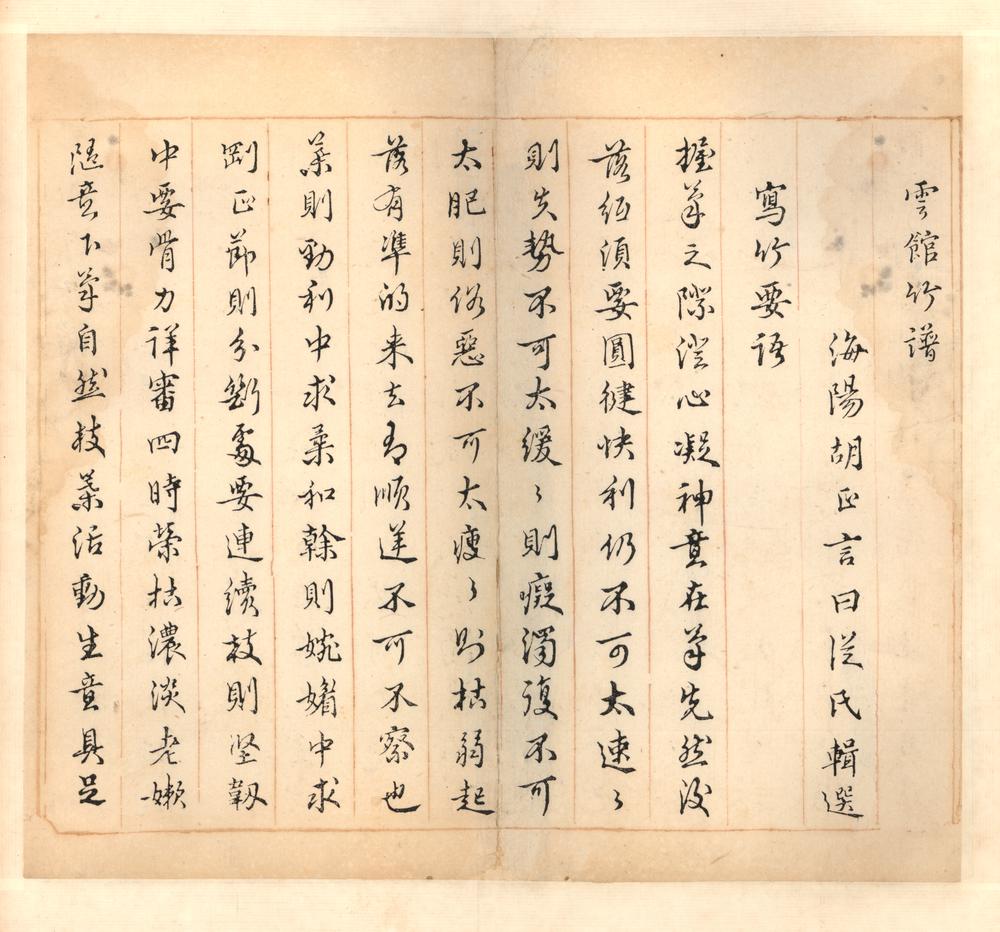 雲館竹譜
海陽胡正言曰從氏輯選
寫竹要語
握筆之際澄心凝神意在筆先然後
落紙須要圓健快利仍不可太速〻
則失勢不可太緩〻則癡濁復不可
太肥則俗惡不可太瘦〻則枯弱起
落有準的来去有順逆不可不察也
葉則勁利中求柔和榦則婉媚中求
剛正節則分斷處要連續枝則堅韌
中要骨力詳審四時榮枯濃淡老嫩
隨意下筆自然枝葉活動生意具足